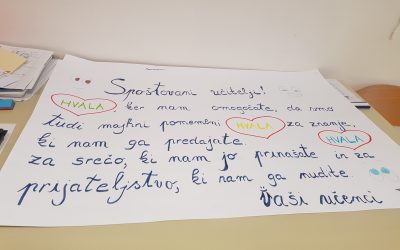 Spoštovani učitelji!
HVALA, ker nam omogočate, da smo
tudi majhni pomembni HVALA za znanje,
ki nam ga predajate. HVALA
za srečo, ki nam jo prinašate in za
prijateljstvo, ki nam ga nudite.
Vaši učenci